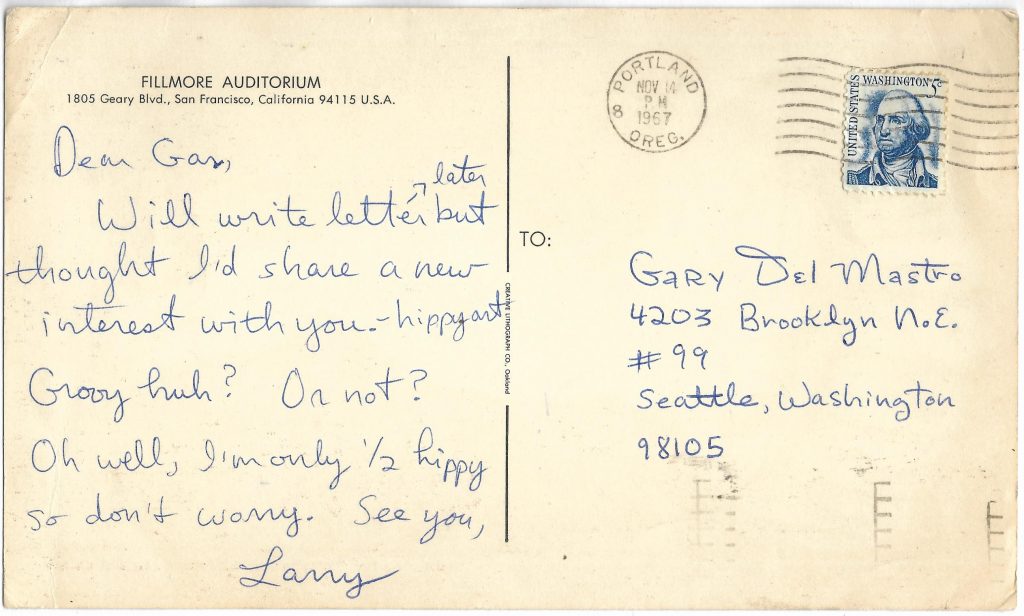 FILLMORE AUDITORIUM
1805 Geary Blvd., San Francisco, California 94115 U.S.A.
Dear Gar,
later
Will write letter but
thought I'd share a new
interest with you.-hippy art
Groovy huh? Or not?
Oh well, I'm only 1/2 hippy
so don't worry. See you,
Larry
CREATIVE LITHOGRAPH CO., Oakland
PORTLAND
NOV 14
PM
8
1967
OREG.
UNITED STATES
WASHINGTON 5¢
TO:
Gary Del Mastro
4203 Brooklyn N.E.
# 99
Seattle, Washington
98105